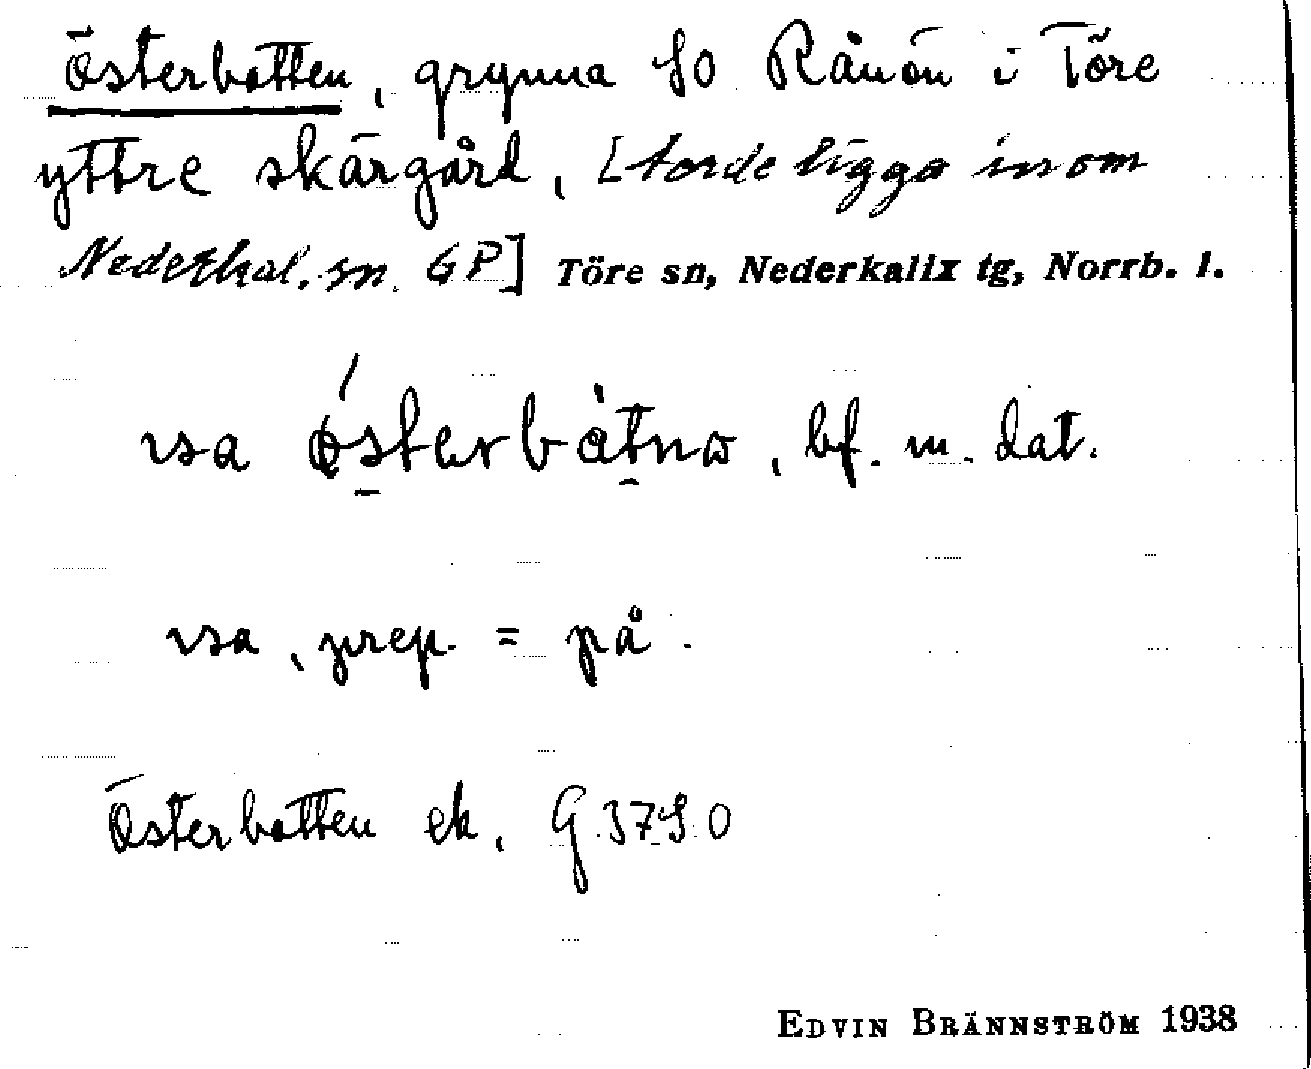 Österbotten, grynna SO Rånön i Töre
yttre skärgård, [torde ligga inom
Nederkal. sn. GP] Töre sn, Nederkalix tg, Norrb. l.
bf. m. dat.
prep. = på.
Österbotten ek. G.37 S.O
EDVIN BRÄNNSTRÖM 1938